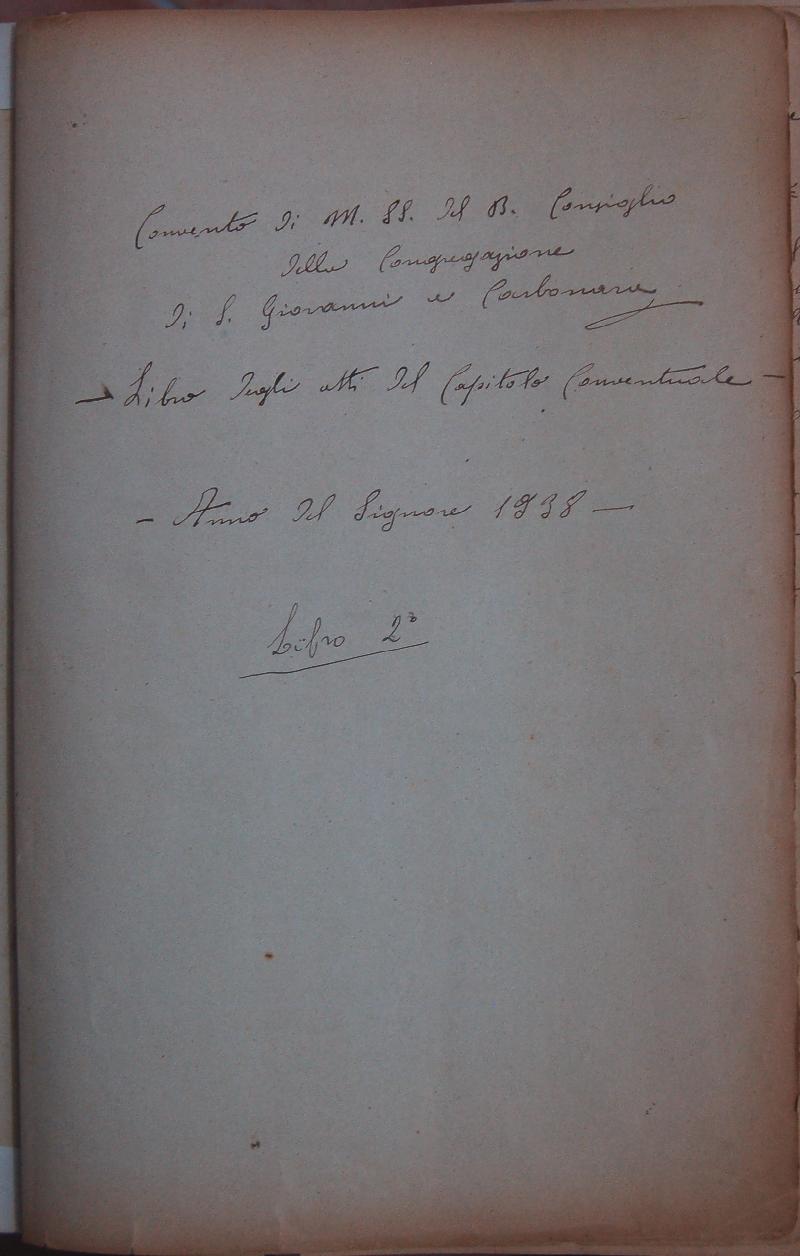 Convento di M. SS. del B. Consiglio
della Congregazione
di S. Giovanni a Carbonara
— Libro degli atti del Capitolo Conventuale —
— Anno del Signore 1938 —
Libro 2º